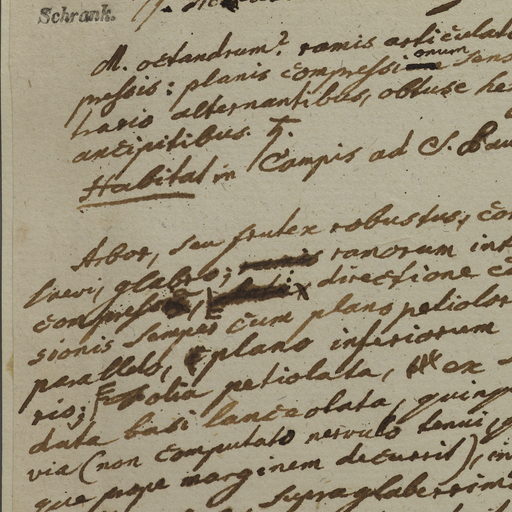 Schrank.
M. octandrum? ramis articulato
pressis: planis compressionum sens
trario alternantibus, obtuse he
ancipitibus. ♄.
Habitat in Campis ad S. Pau
Arbor, seu frutex robustus, co
laevi, glabro; ramorum int
compressus, directione c
sionis semper cum plano petiolor
parallelo, plano inferiorum
rio; Folia petiolata, ex
data basi lanceolata, quinqu
via (non computato nervulo tenui,
que prope marginem decurrit), in
supra glaberrim